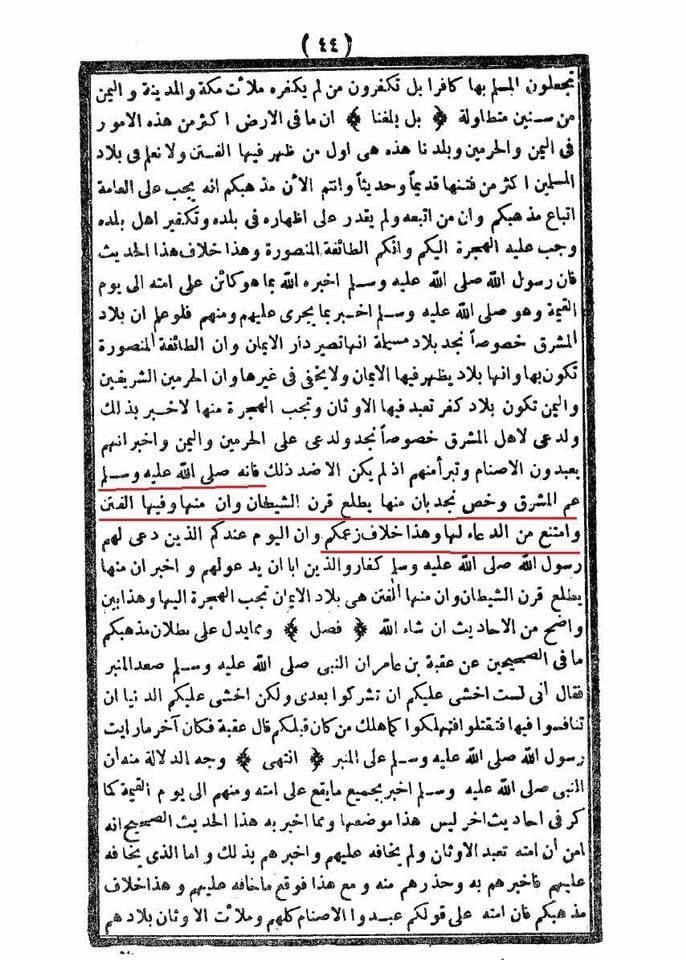 ( ٤٤ )
تجعلون المسلم بها كافرا بل تكفرون من لم يكفره ملأت مكة والمدينة و اليمن
من سنين متطاولة ﴿ بل بلغنا ﴾ ان ما فى الارض اكثر من هذه الامور
فى اليمن والحرمين وبلدنا هذه هى اول من ظهر فيها الفتن ولا نعلم فى بلاد
المسلمين اكثر من فتنها قديماً وحديثاً وانتم الأن مذهبكم انه يجب على العامة
اتباع مذهبكم وان من اتبعه ولم يقدر على اظهاره فى بلده وتكفير اهل بلده
وجب عليه الهجرة اليكم وانكم الطائفة المنصورة وهذا خلاف هذا الحديث
فان رسول الله صلى الله عليه وسلم اخبره الله بما هو كائن على امته الى يوم
القيمة وهو صلى الله عليه وسلم اخبر بما يجرى عليهم ومنهم فلو علم ان بلاد
المشرق خصوصاً نجد بلاد مسيلمة انها تصير دار الايمان وان الطائفة المنصورة
تكون بها وانها بلاد يظهر فيها الايمان ولا يخفى فى غيرها وان الحرمين الشريفين
واليمن تكون بلاد كفر تعبد فيها الاوثان وتجب الهجرة منها لاخبر بذلك
ولدعى لاهل المشرق خصوصاً نجد ولدعى على الحرمين واليمن واخبر انهم
يعبدون الاصنام وتبرأ منهم اذ لم يكن الا ضد ذلك فانه صلى الله عليه وسلم
عم المشرق وخص نجد بان منها يطلع قرن الشيطان وان منها وفيها الفتن
وامتنع من الدعاء لها وهذا خلاف زعمكم وان اليوم عندكم الذين دعى لهم
رسول الله صلى الله عليه وسلم كفار والذين ابا ان يدعو لهم و اخبر ان منها
يطلع قرن الشيطان وان منها الفتن هى بلاد الايمان تجب الهجرة اليها وهذا بين
واضح من الاحاديث ان شاء الله ﴿ فصل ﴾ ومما يدل على بطلان مذهبكم
ما فى الصحيحين عن عقبة بن عامر ان النبى صلى الله عليه وسلم صعد المنبر
فقال أنى لست اخشى عليكم ان تشركوا بعدى ولكن اخشى عليكم الدنيا ان
تنافسوا فيها فتقتلوا فتهلكوا كما هلك من كان قبلكم قال عقبة فكان آخر ما رايت
رسول الله صلى الله عليه وسلم على المنبر ﴿ انتهى ﴾ وجه الدلالة منه أن
النبى صلى الله عليه وسلم اخبر بجميع ما يقع على امته ومنهم الى يوم القيمة كما
كر فى احاديث اخر ليس هذا موضعها ومما اخبر به هذا الحديث الصحيح انه
امن أن امته تعبد الاوثان ولم يخافه عليهم و اخبرهم بذلك و اما الذى يخافه
عليهم فاخبرهم به وحذرهم منه و مع هذا فوقع ما خافه عليهم و هذا خلاف
مذهبكم فان امته على قولكم عبدوا الاصنام كلهم وملأت الاوثان بلادهم